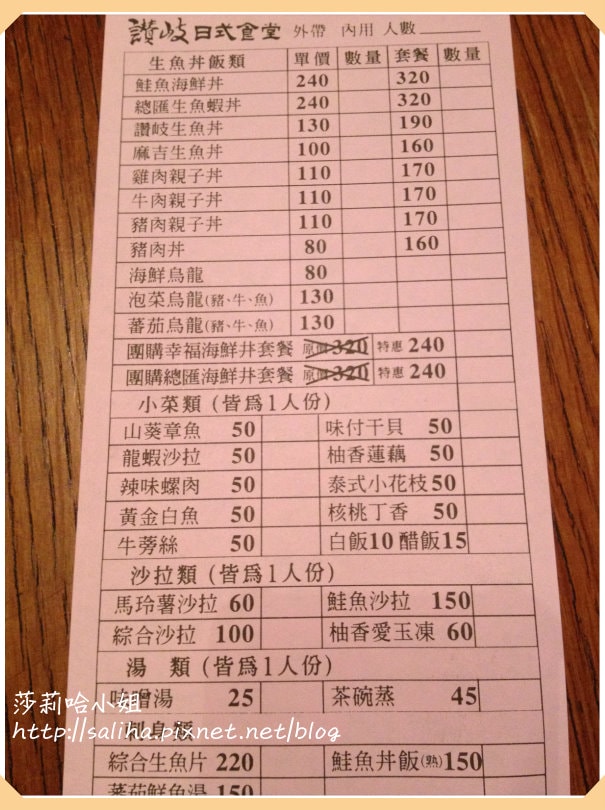 讚岐日式食堂 外帶 內用 人數
生魚丼飯類 單價 數量 套餐 數量
鮭魚海鮮丼 240 320
總匯生魚蝦丼 240 320
讚岐生魚丼 130 190
麻吉生魚丼 100 160
雞肉親子丼 110 170
牛肉親子丼 110 170
豬肉親子丼 110 170
豬肉丼 80 160
海鮮烏龍 80
泡菜烏龍(豬、牛、魚) 130
蕃茄烏龍(豬、牛、魚) 130
團購幸福海鮮丼套餐 原價320 特惠240
團購總匯海鮮丼套餐 原價320 特惠240
小菜類(皆爲1人份)
山葵章魚 50 味付干貝 50
龍蝦沙拉 50 柚香蓮藕 50
辣味螺肉 50 泰式小花枝 50
黃金白魚 50 核桃丁香 50
牛蒡絲 50 白飯10 醋飯15
沙拉類(皆爲1人份)
馬玲薯沙拉 60 鮭魚沙拉 150
綜合沙拉 100 柚香愛玉凍 60
湯 類(皆爲1人份)
味噌湯 25 茶碗蒸 45
刺身類
綜合生魚片 220 鮭魚丼飯(熟)150
蕃茄鮮魚湯 150
莎莉哈小姐
http://saliha.pixnet.net/blog